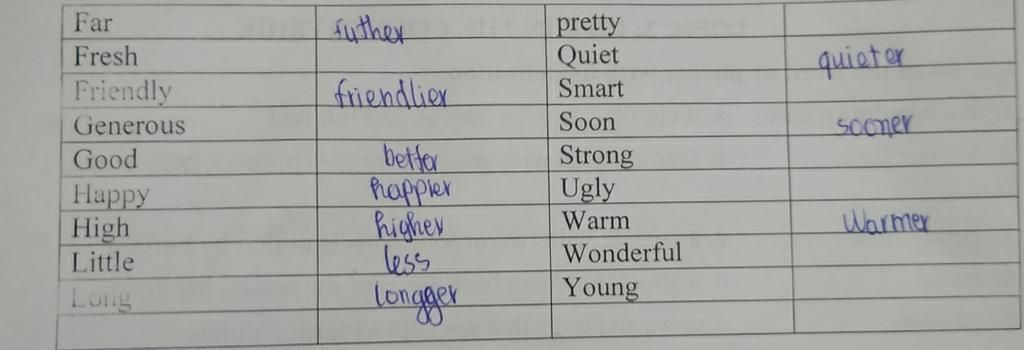 Far futher pretty
Fresh Quiet quieter
Friendly friendlier Smart
Generous Soon sooner
Good better Strong
Happy happier Ugly
High higher Warm Warmer
Little less Wonderful
Long longger Young